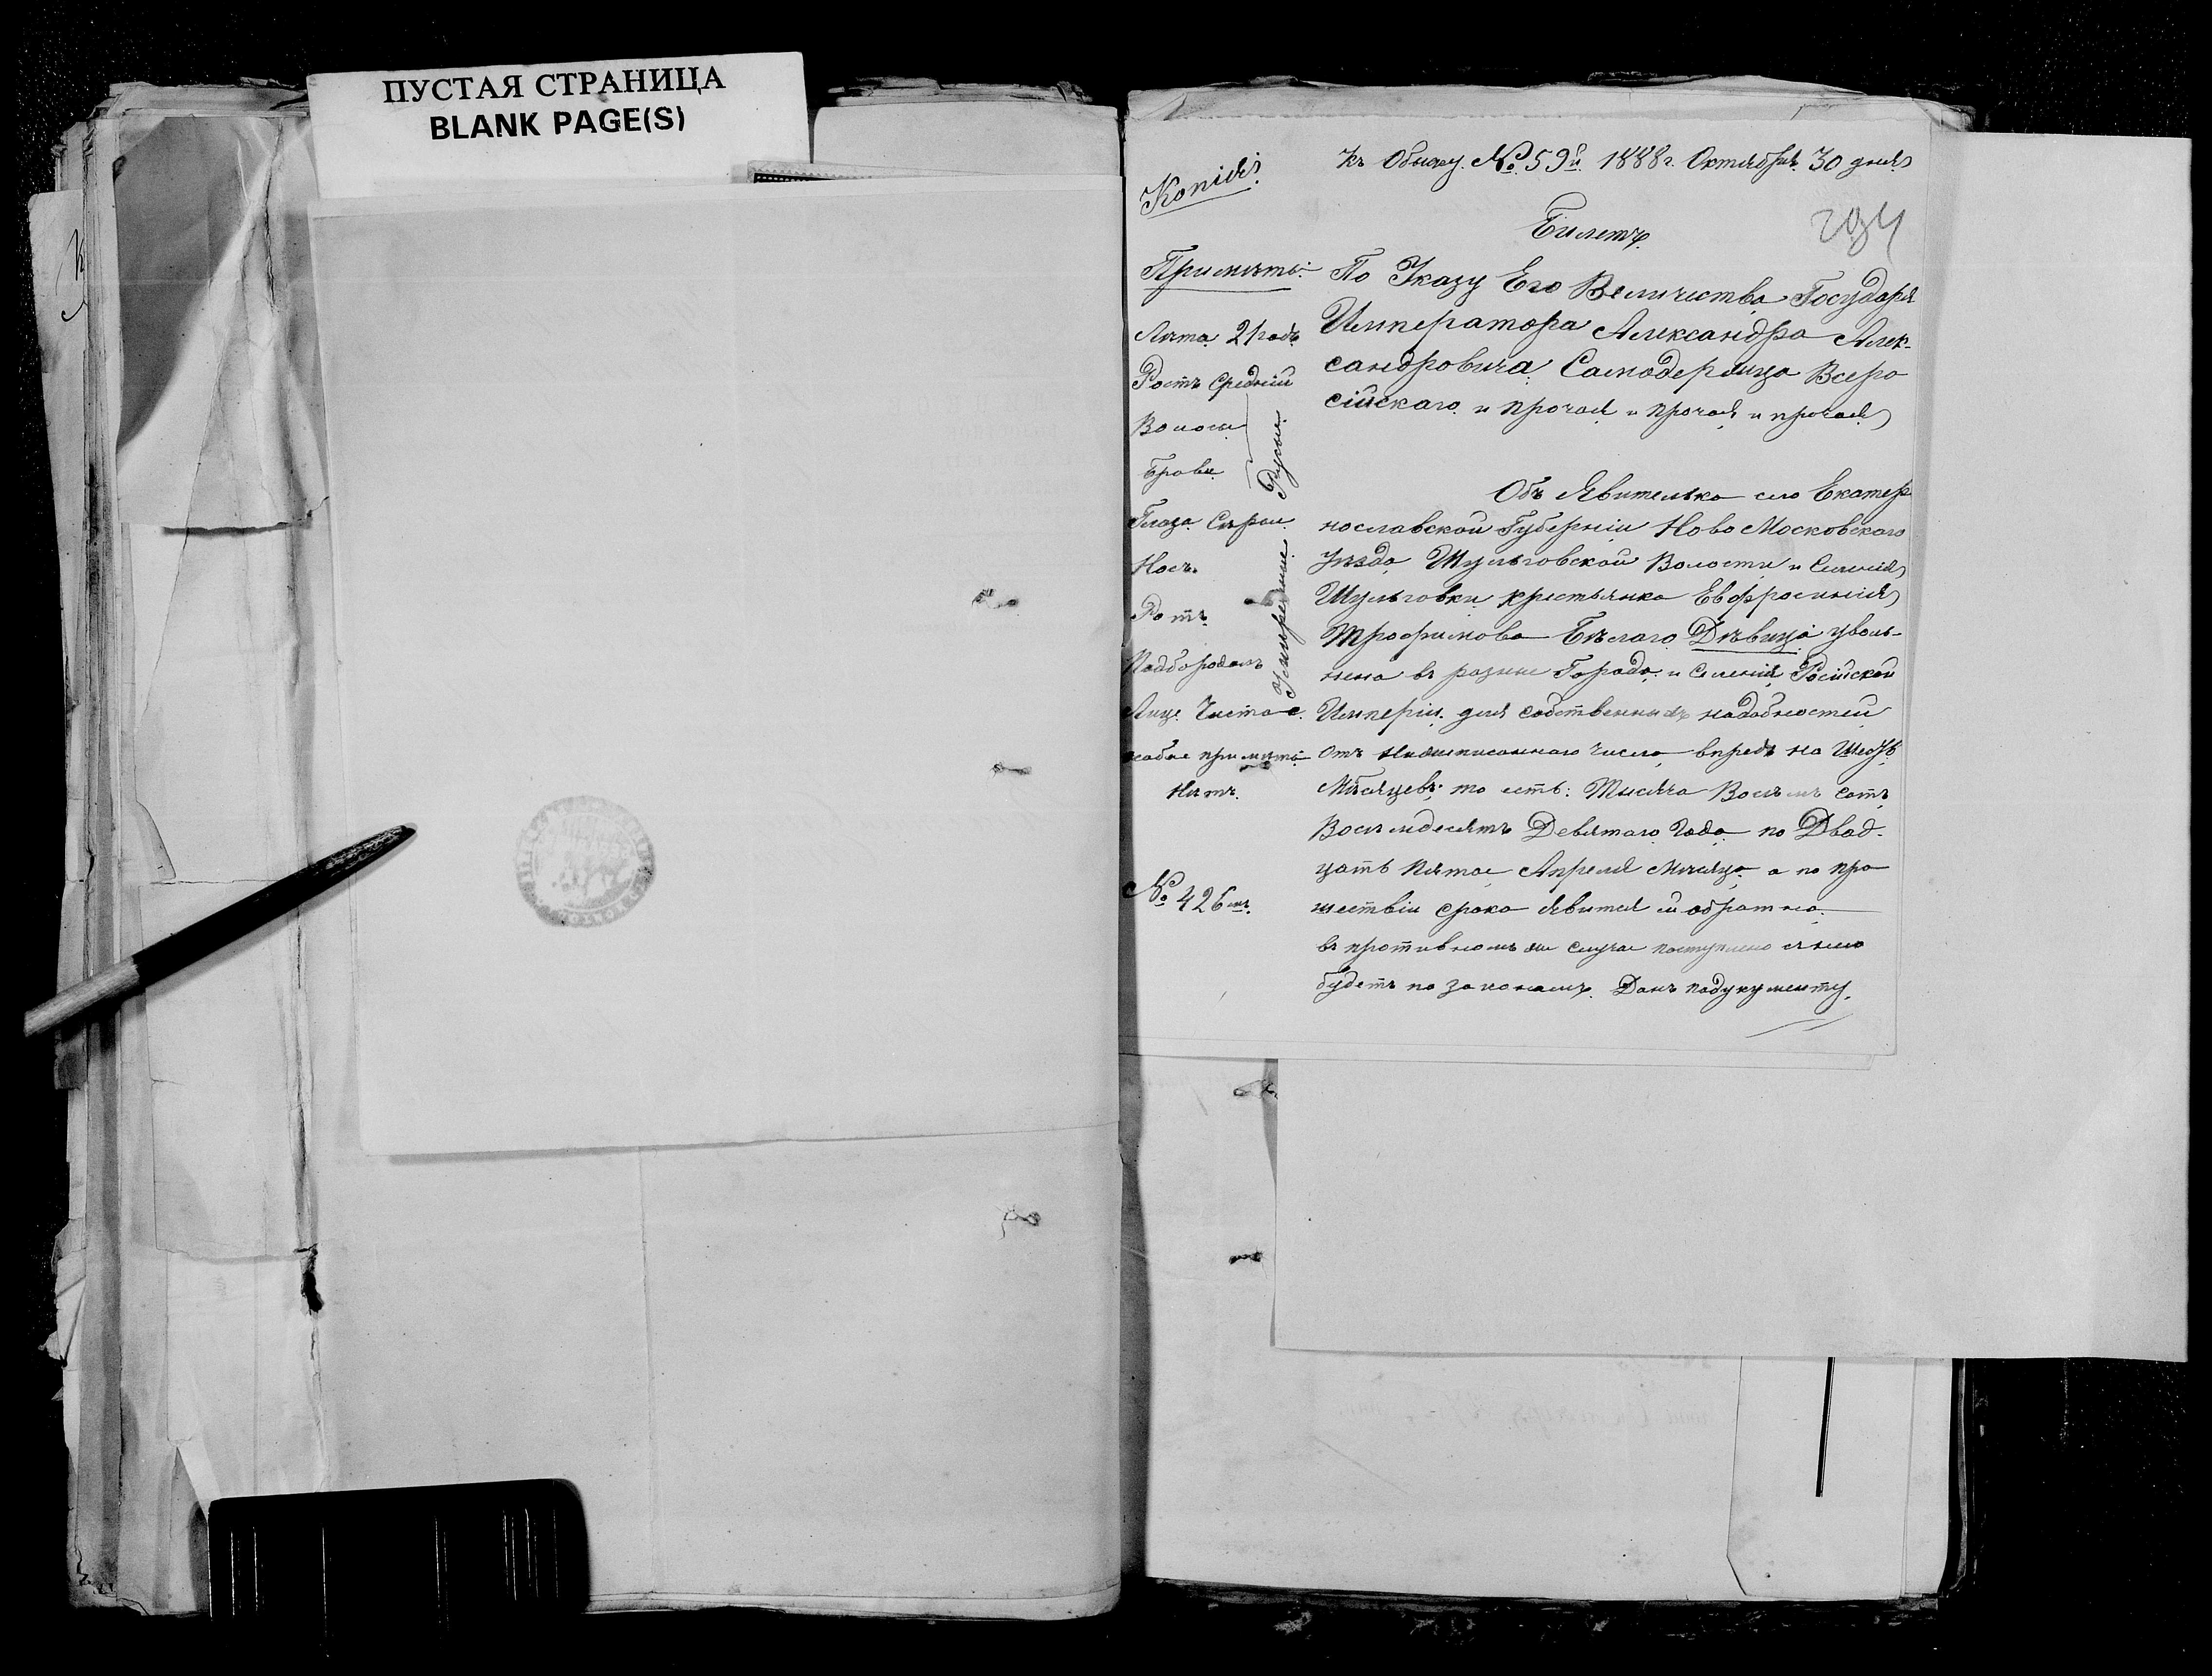 ПУСТАЯ СТРАНИЦА
BLANK PAGE(S)
Копія
Къ Обыску № 59й 1888 г. Октября 30 дня
Билетъ
Примѣты:
Лѣта 21 годъ
Ростъ средній
Волосы
Брови
Русые
Глаза Сѣрые
Носъ
Ротъ
Подбородокъ
Умѣренные
Лице Чистое
особые примѣты
Нѣтъ.
№ 426
По Указу Его Величества Государя
Императора Александра Алек-
сандровича Самодержца Всеро
сійскаго и прочая и прочая и прочая
Объ Явителька сего Екатер
нославской Губерніи Ново Московскаго
уѣзда Шульговской Волости и Селенія
Шульговки крестьянка Евфросинія
Трофимова Бѣлаго Дѣвица уволь-
нена въ разные Города и Селенія Російской
Имперіи для собственныхъ надобностей
отъ нижеписаннаго числа впредъ на Шесть
Мѣсяцевъ: то есть: Тысяча Восемъ сотъ
Восемдесятъ Девятаго Года по Двад-
цать пятое Апреля Мѣсяца а по про
шествіи срока явится ей обратно
въ противномъ же случае поступлено с нею
будетъ по законамъ. Данъ подукументу